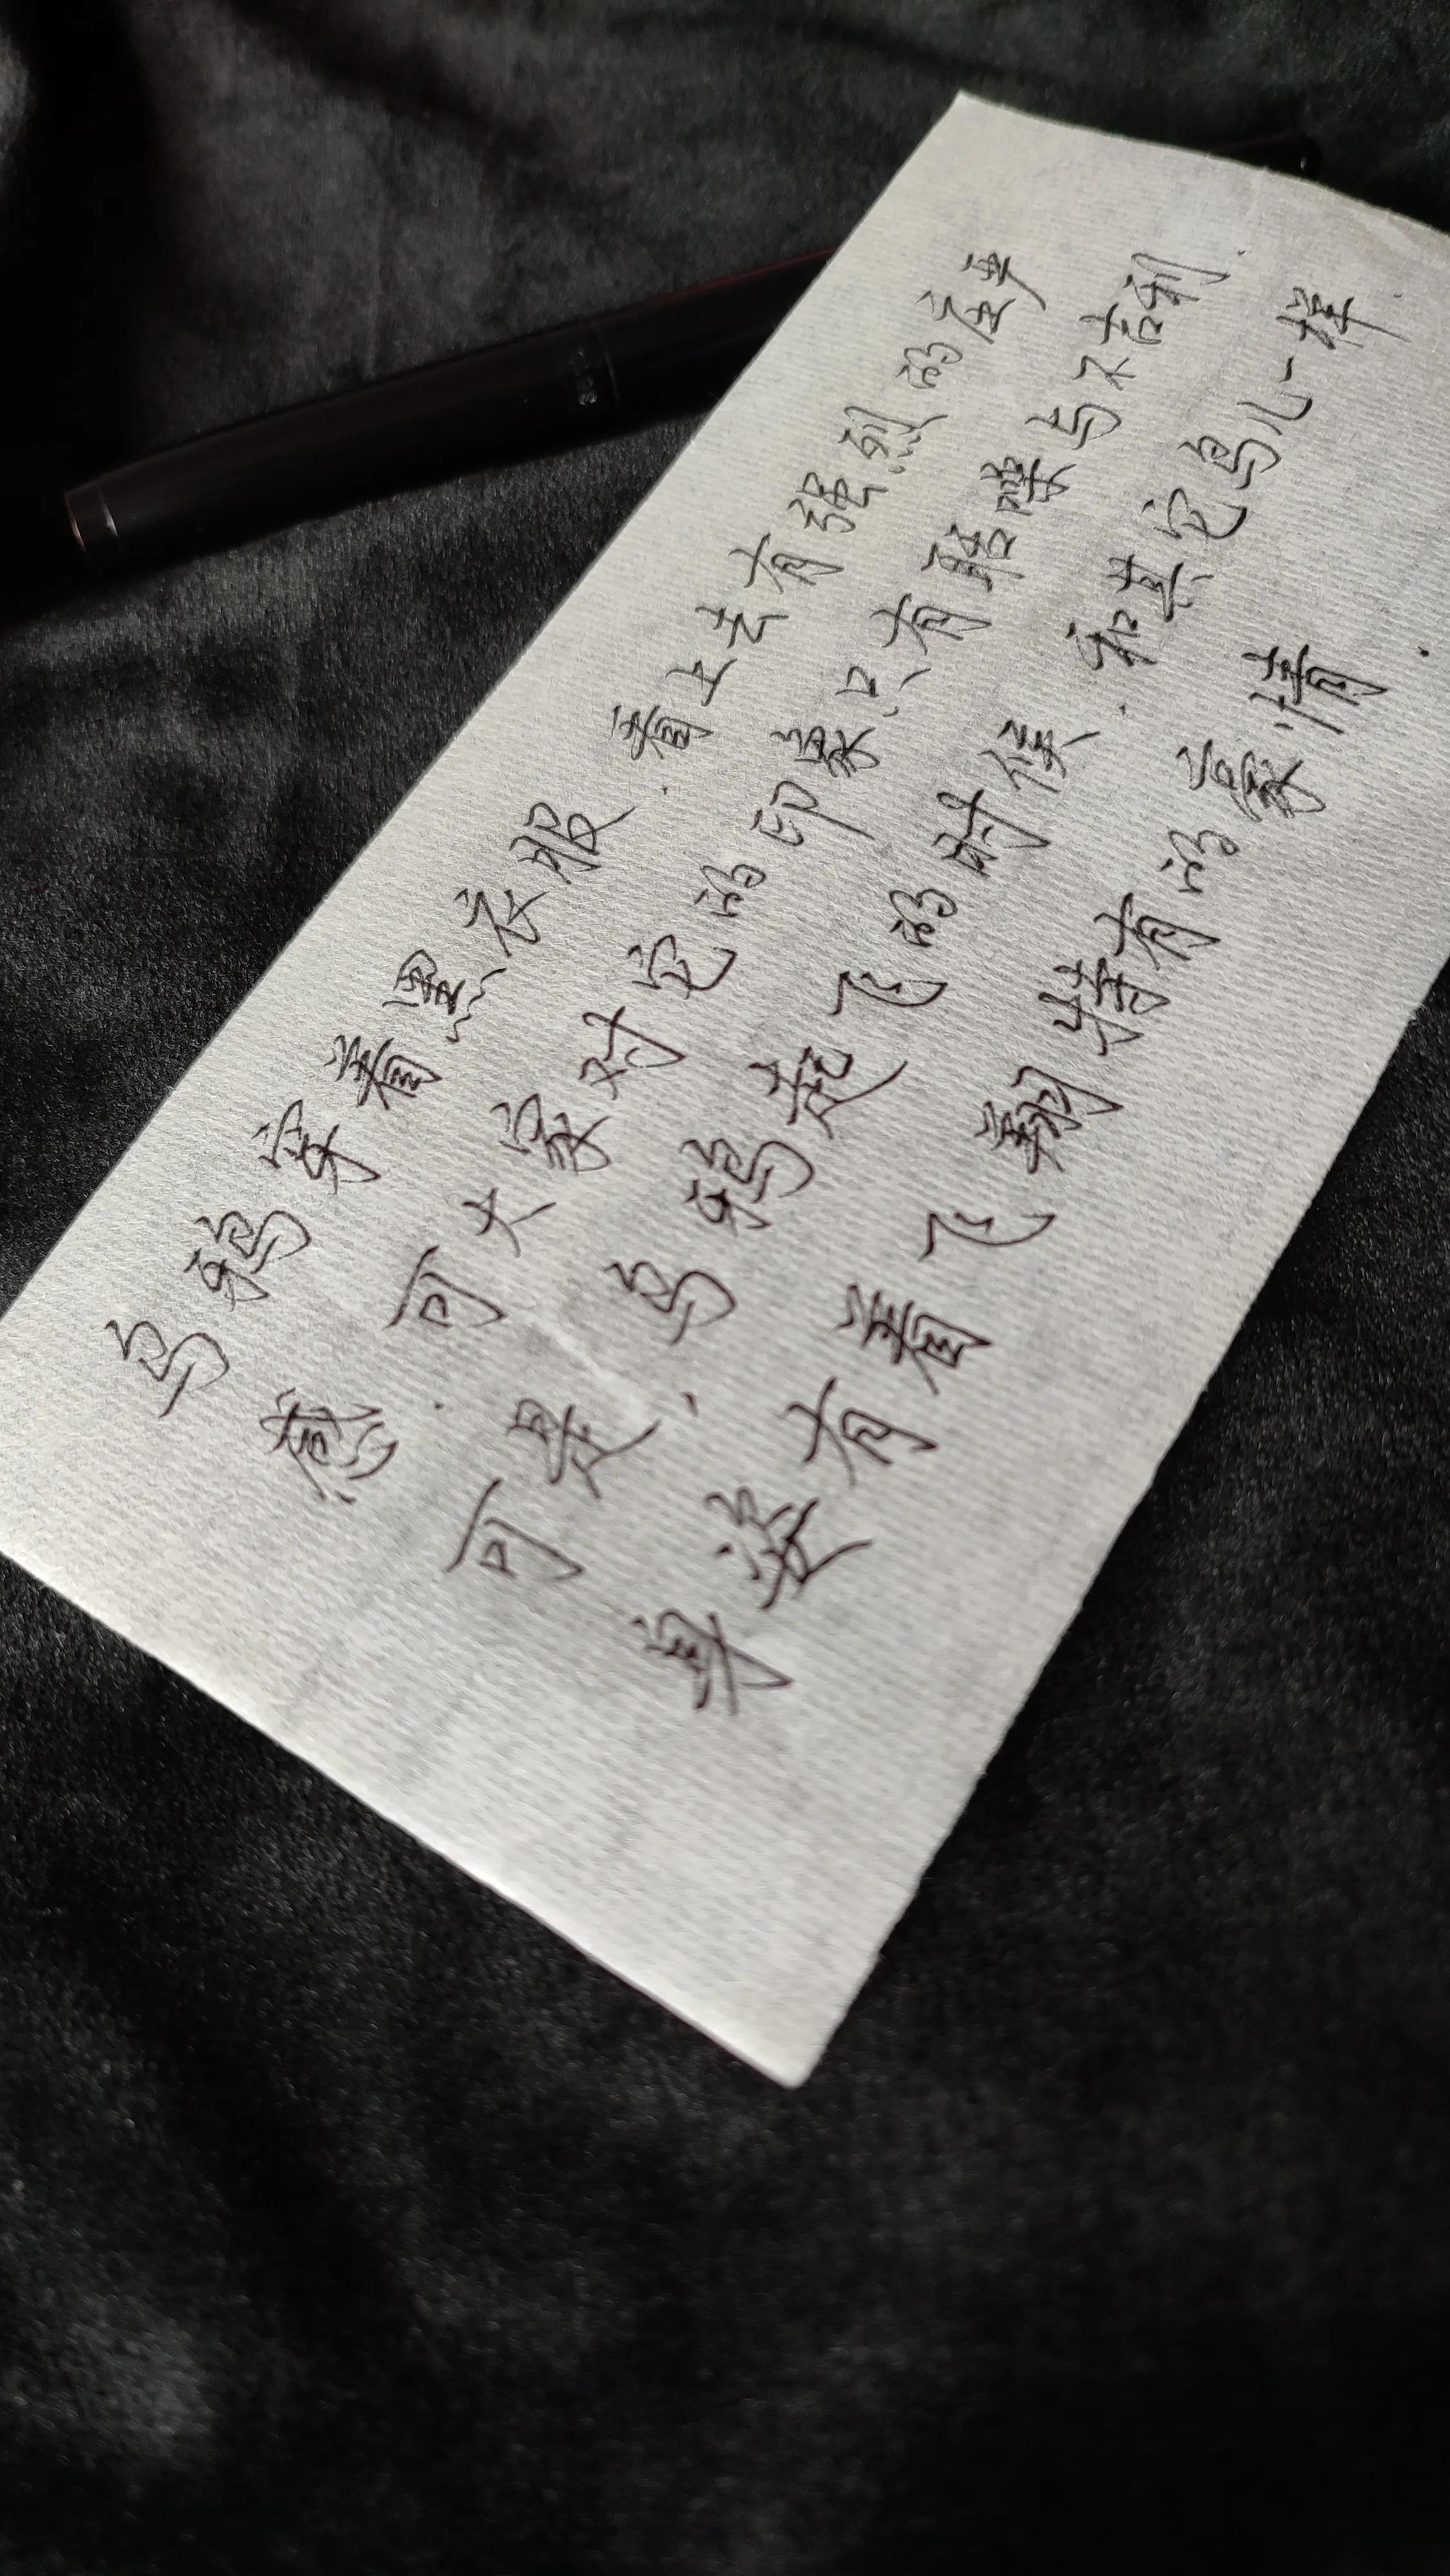 乌鸦穿着黑衣服.看上去有强烈的庄肃
感.可大家对它的印象只有聒噪与不吉利.
可是、乌鸦起飞的时候.和其它鸟儿一样.
身姿有着飞翔特有的豪情.